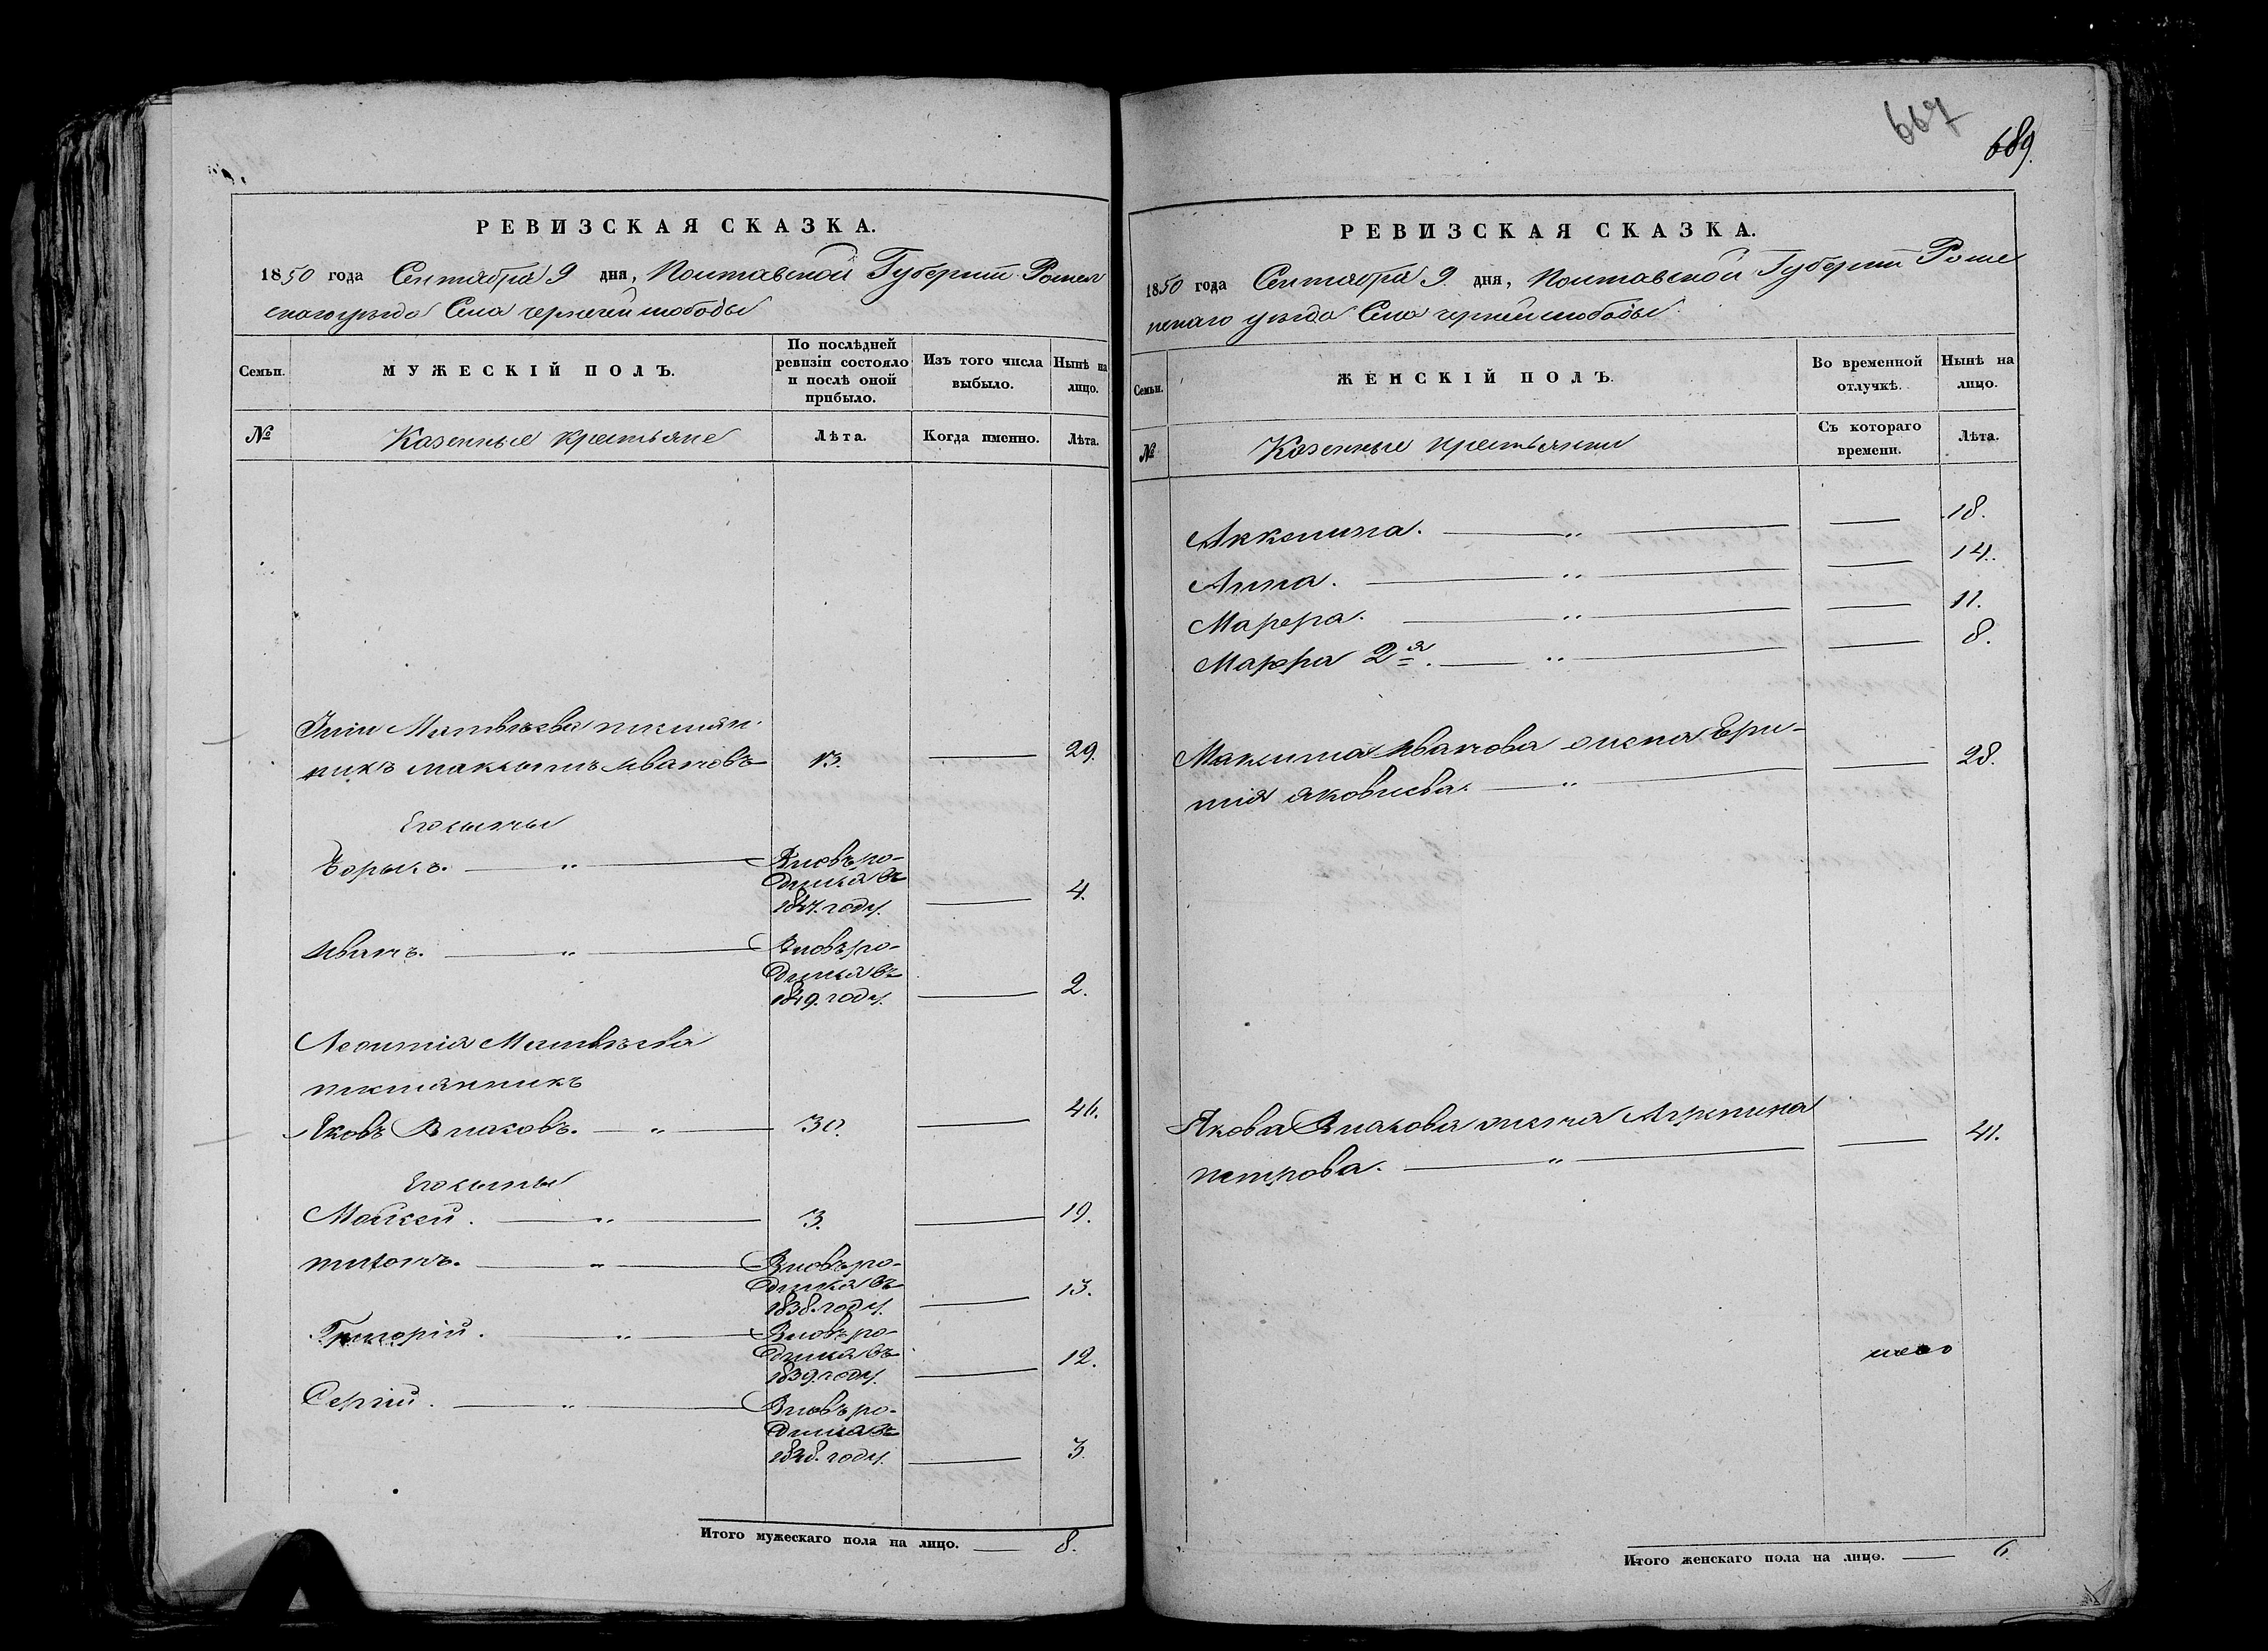 РЕВИЗСКАЯ СКАЗКА.
1850 года Сентября 9 дня, Полтавской Губерніи Ромен
скаго уѣзда Села чернечей слободы
Семьи.
МУЖЕСКІЙ ПОЛЪ.
По послѣдней
ревизіи состояло
и послѣ оной
прибыло.
Изъ того числа
выбыло.
Нынѣ на
лицо.
№
Казенные крестьяне
Лѣта.
Когда именно.
Лѣта.
Матвѣева племян-
никъ Максимъ Ивановъ 13. 29.
Его сыны
Борысъ. " Вновь ро-
дился въ
1847. году. 4.
Иванъ. " Вновь ро-
дился въ
1849. году. 2.
Леонтія Матвѣева
племянникъ
Яковъ Власовъ. " 30. 46.
Его сыны
Мойсей. " 3. 19.
тихонъ. " Вновь ро-
дился въ
1838. году. 13.
Григорій. " Вновь ро-
дился въ
1839. году. 12.
Сергій. " Вновь ро-
дился въ
1848. году. 3.
Итого мужескаго пола на лицо. 8.
667
689.
РЕВИЗСКАЯ СКАЗКА.
1850 года Сентября 9. дня, Полтавской Губерніи Роме
нскаго уѣзда Села чернечей слободы
Семьи.
ЖЕНСКІЙ ПОЛЪ.
Во временной
отлучкѣ.
Нынѣ на
лицо.
№
Казенные крестьянки
Съ котораго
времени.
Лѣта.
Акилина. " 18.
Анна. " 14.
Марфа. " 11.
Марфа 2я. " 8.
Максима Иванова жена Ефи-
мія яковлева. " 28.
Якова Власова жена Агрепина
петрова. " 41.
Итого женскаго пола на лицо. 6.